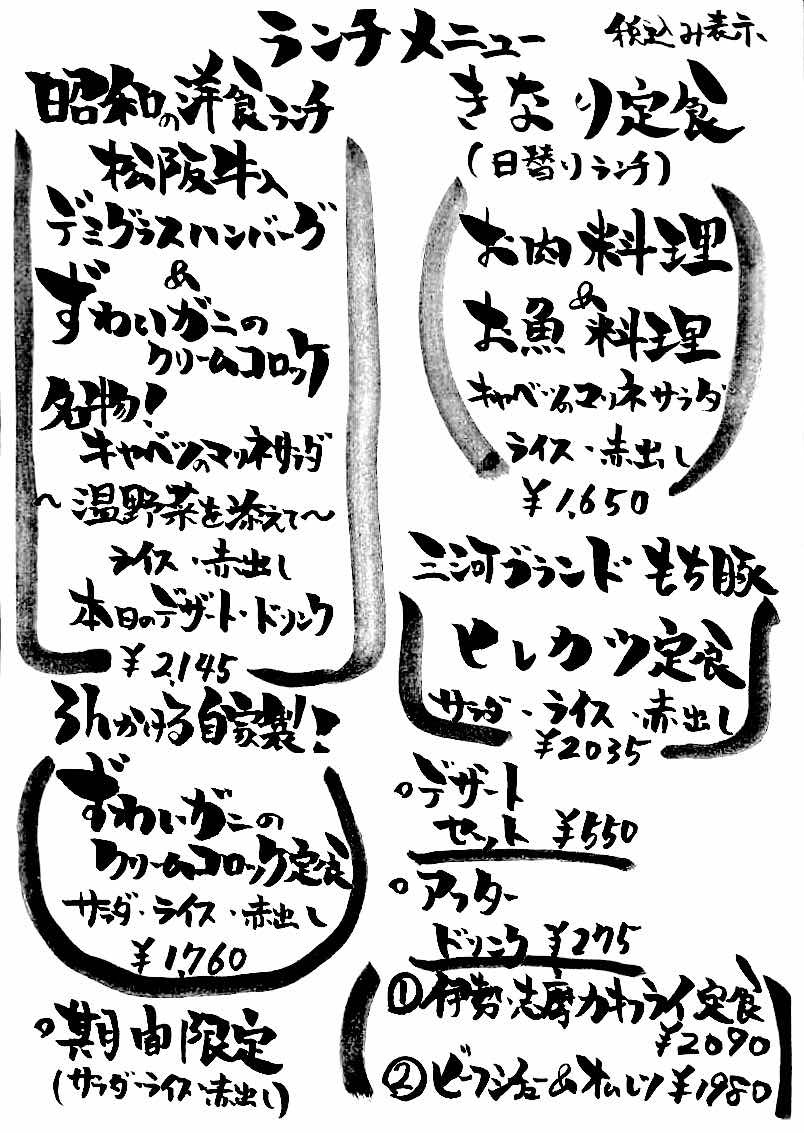 ランチメニュー
税込み表示
昭和の洋食ランチ
松阪牛入
デミグラスハンバーグ
&
ずわいガニの
クリームコロッケ
名物!
キャベツのマリネサラダ
~温野菜を添えて~
ライス・赤出し
本日のデザート・ドリンク
¥2,145
ろんかける自家製!!
ずわいガニの
クリームコロッケ定食
サラダ・ライス・赤出し
¥1,760
きなり定食
(日替りランチ)
お肉料理
&
お魚料理
キャベツのマリネサラダ
ライス・赤出し
¥1,650
三河ブランドもち豚
ヒレカツ定食
サラダ・ライス・赤出し
¥2035
○デザート
セット ¥550
○アフター
ドリンク ¥275
○期間限定
(サラダ・ライス・赤出し)
①伊勢・志摩カキフライ定食
¥2090
②ビーフシチュー&オムレツ ¥1980